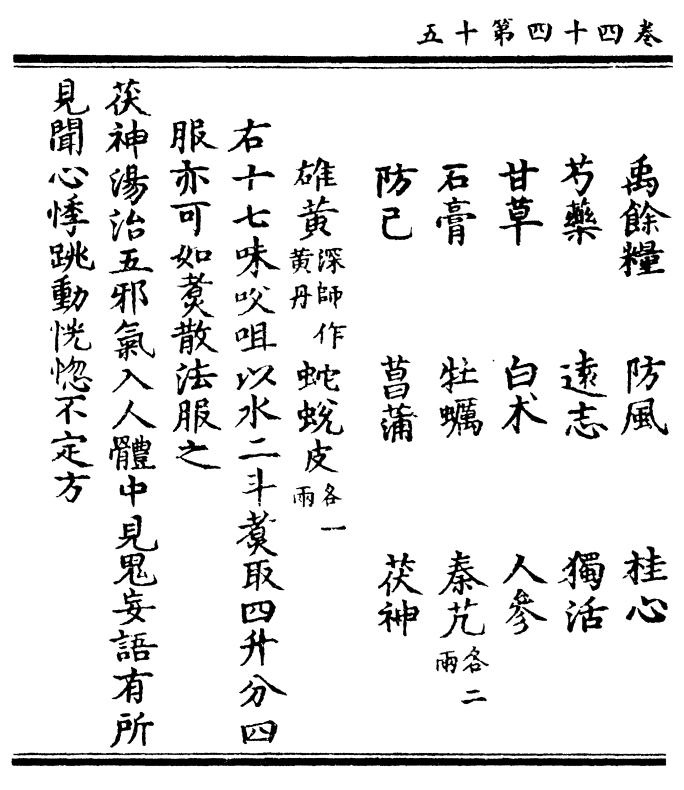 卷四十四第十五
禹餘糧　防風　桂心
芍藥　遠志　獨活
甘草　白术　人參
石膏　牡蠣　秦艽各二兩
防己　菖蒲　茯神
雄黃深師作黃丹　蛇蛻皮各一兩
右十七味㕮咀以水二斗煑取四升分四
服亦可如煑散法服之
茯神湯治五邪氣入人體中見鬼妄語有所
見聞心悸跳動恍惚不定方